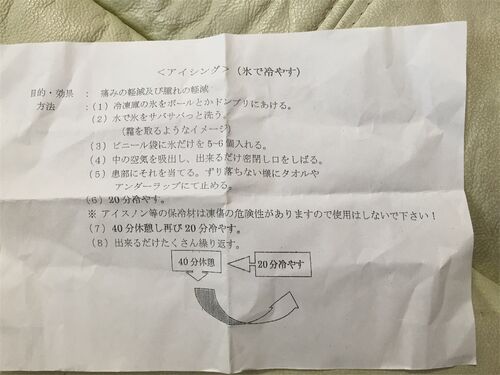 <アイシング>(氷で冷やす)
目的・効果 : 痛みの軽減及び腫れの軽減
方法 : (1) 冷凍庫の氷をボールとかドンブリにあける。
(2) 水で氷をサバサバっと洗う。
(霜を取るようなイメージ)
(3) ビニール袋に氷だけを5~6個入れる。
(4) 中の空気を吸出し、出来るだけ密閉し口をしばる。
(5) 患部にそれを当てる。ずり落ちない様にタオルや
アンダーラップにて止める。
(6) 20分冷やす。
※ アイスノン等の保冷材は凍傷の危険性がありますので使用はしないで下さい!
(7) 40分休憩し再び20分冷やす。
(8) 出来るだけたくさん繰り返す。
40分休憩 20分冷やす